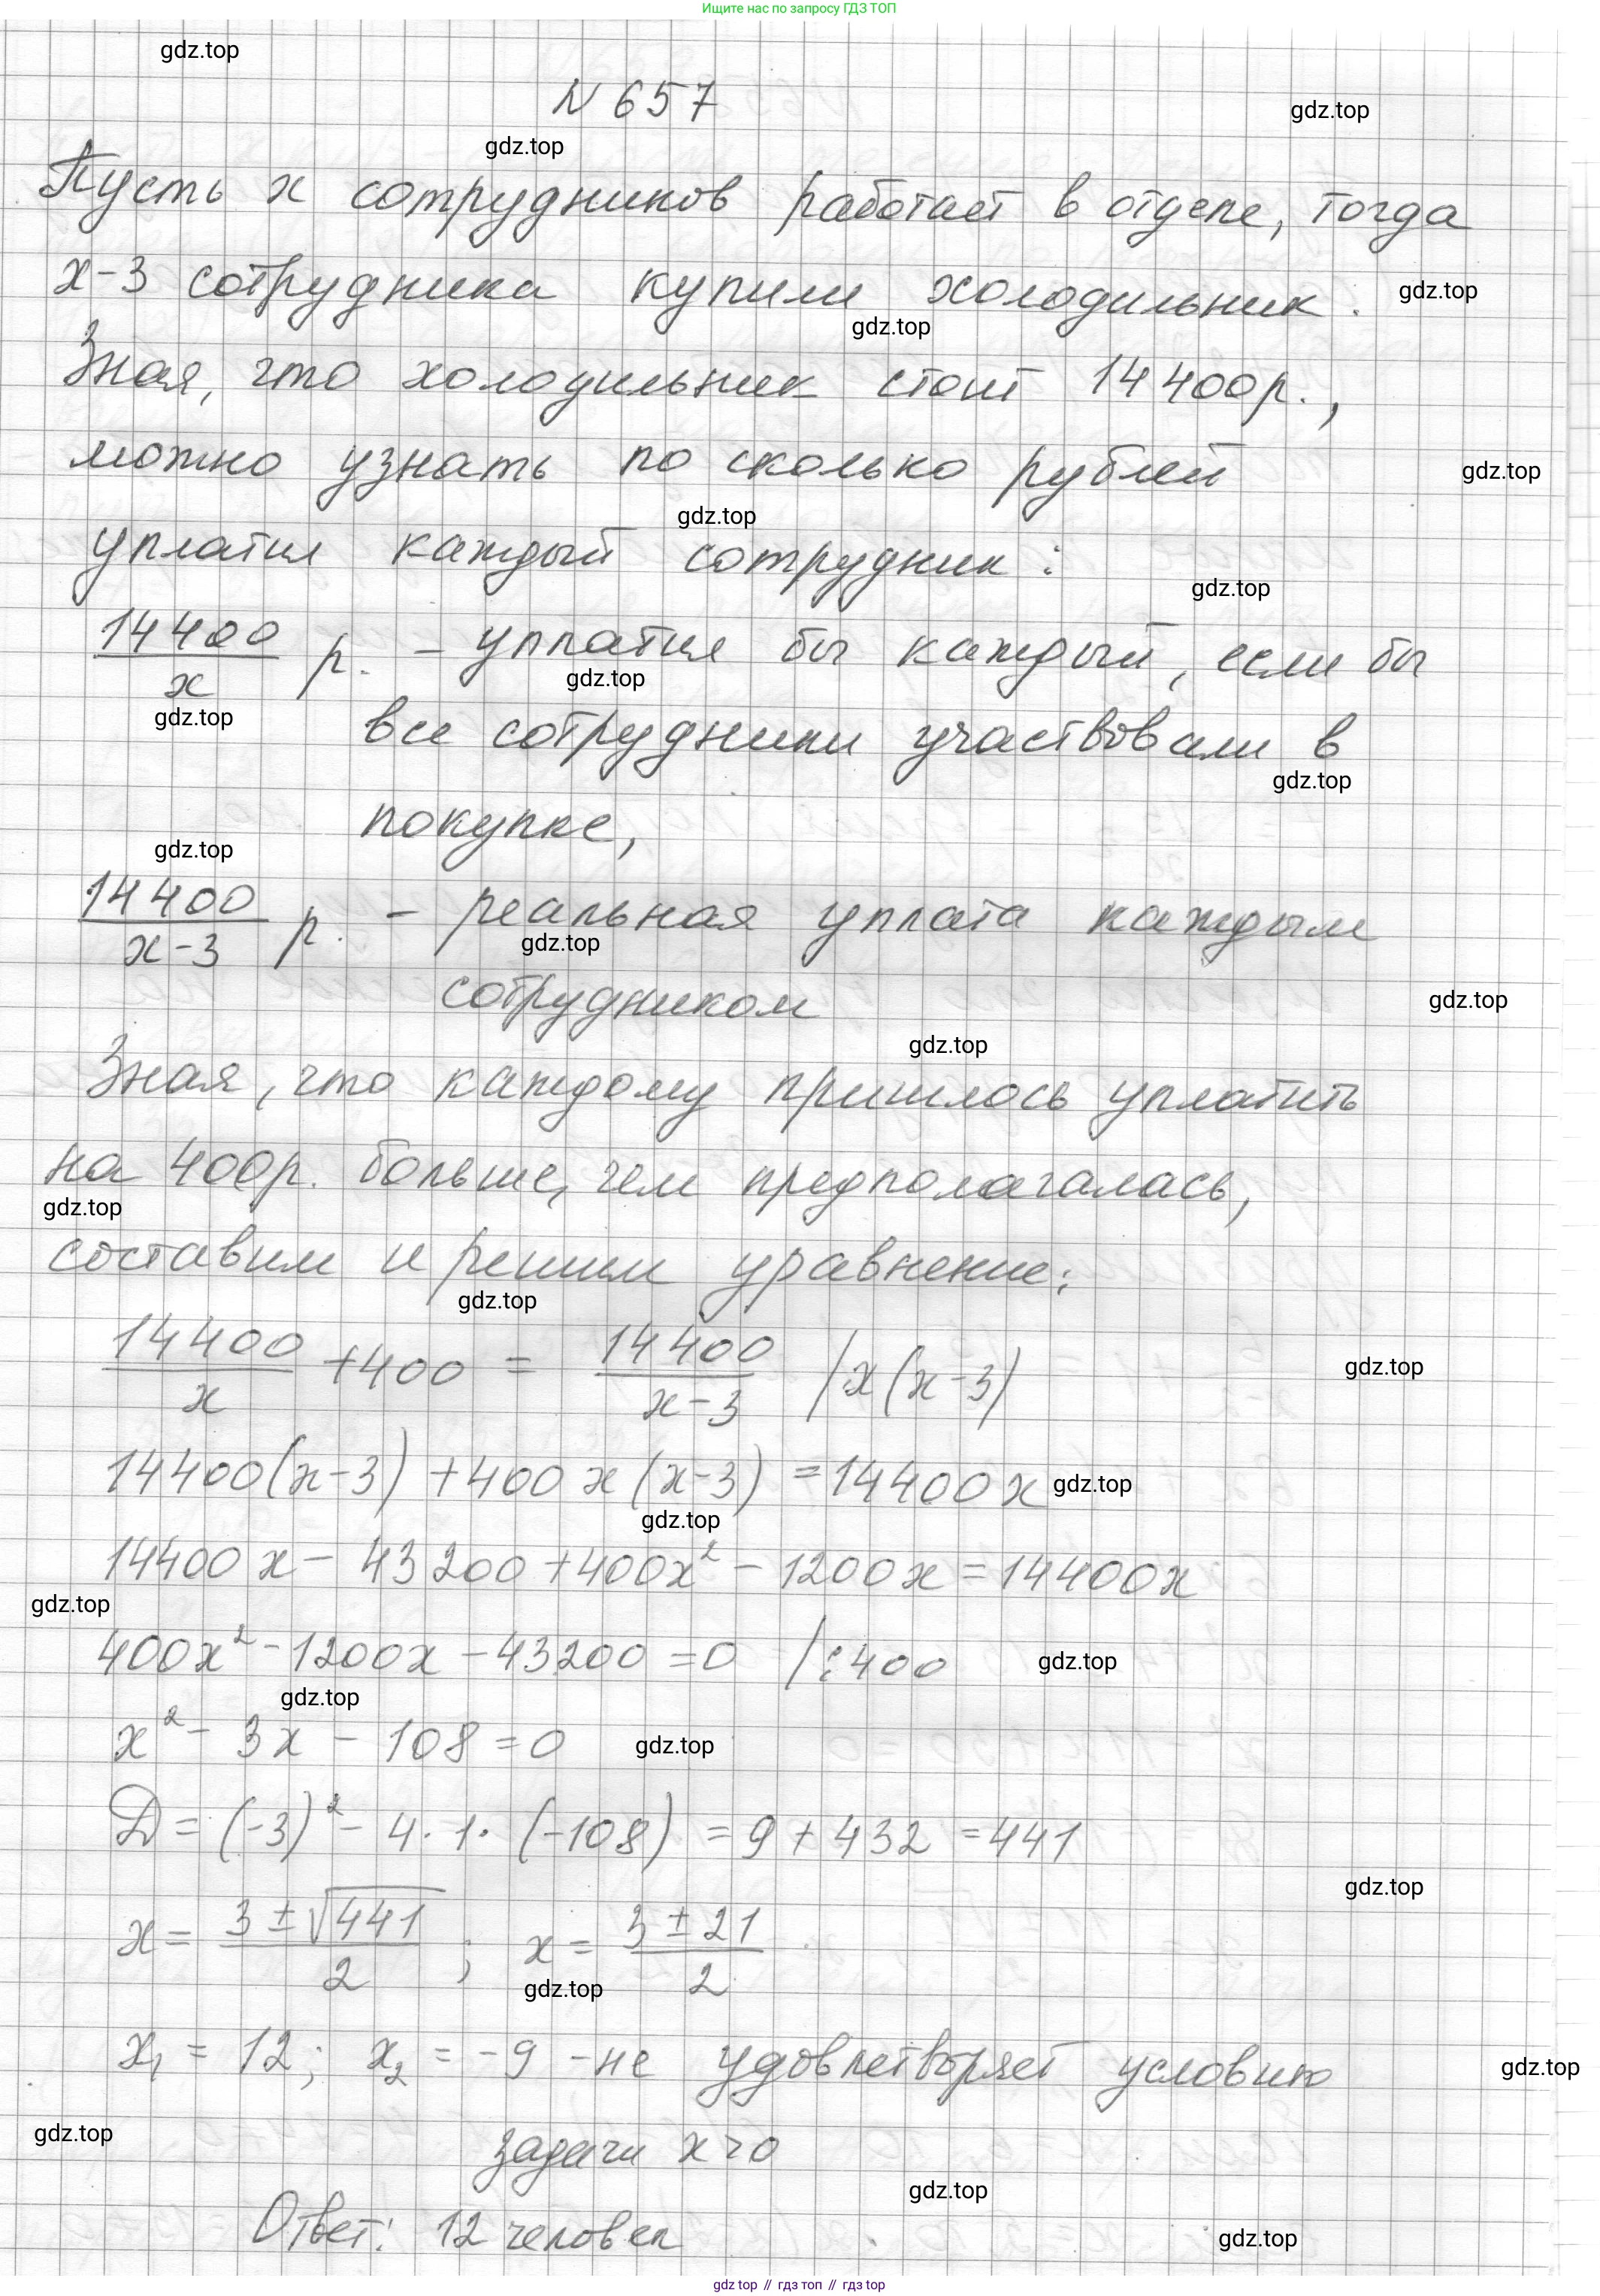 Ищите нас по запросу ГДЗ ТОП
gdz.top
N 657
gdz.top
gdz.top
Пусть x сотрудников работает в отделе, тогда
x-3 сотрудника купили холодильник.
gdz.top
gdz.top
Зная, что холодильник стоит 14 400р.,
можно узнать по сколько рублей
gdz.top
gdz.top
уплатил каждый сотрудник:
gdz.top
14400/x р. - уплатил бы каждый, если бы
gdz.top
gdz.top
все сотрудники участвовали в
gdz.top
покупке,
gdz.top
14400/(x-3) р. - реальная уплата каждым
gdz.top
сотрудником
gdz.top
gdz.top
Зная, что каждому пришлось уплатить
на 400р. больше, чем предполагалась,
gdz.top
составим и решим уравнение:
gdz.top
14400/x +400 = 14400/(x-3) /x(x-3)
gdz.top
14400(x-3) +400x(x-3) =14400x
gdz.top
gdz.top
14400x - 43200 +400x² - 1200x = 14400x
gdz.top
400x² - 1200x - 43200 = 0 /:400
gdz.top
gdz.top
x² - 3x - 108 = 0
gdz.top
D = (-3)² - 4·1·(-108) = 9 + 432 = 441
gdz.top
x = (3 ± √441)/2 ; x = (3 ± 21)/2
gdz.top
x₁ = 12; x₂ = -9 - не удовлетворяет условию
gdz.top
gdz.top
задачи x>0
gdz.top
Ответ: 12 человек
gdz.top
gdz top // гдз топ // gdz top